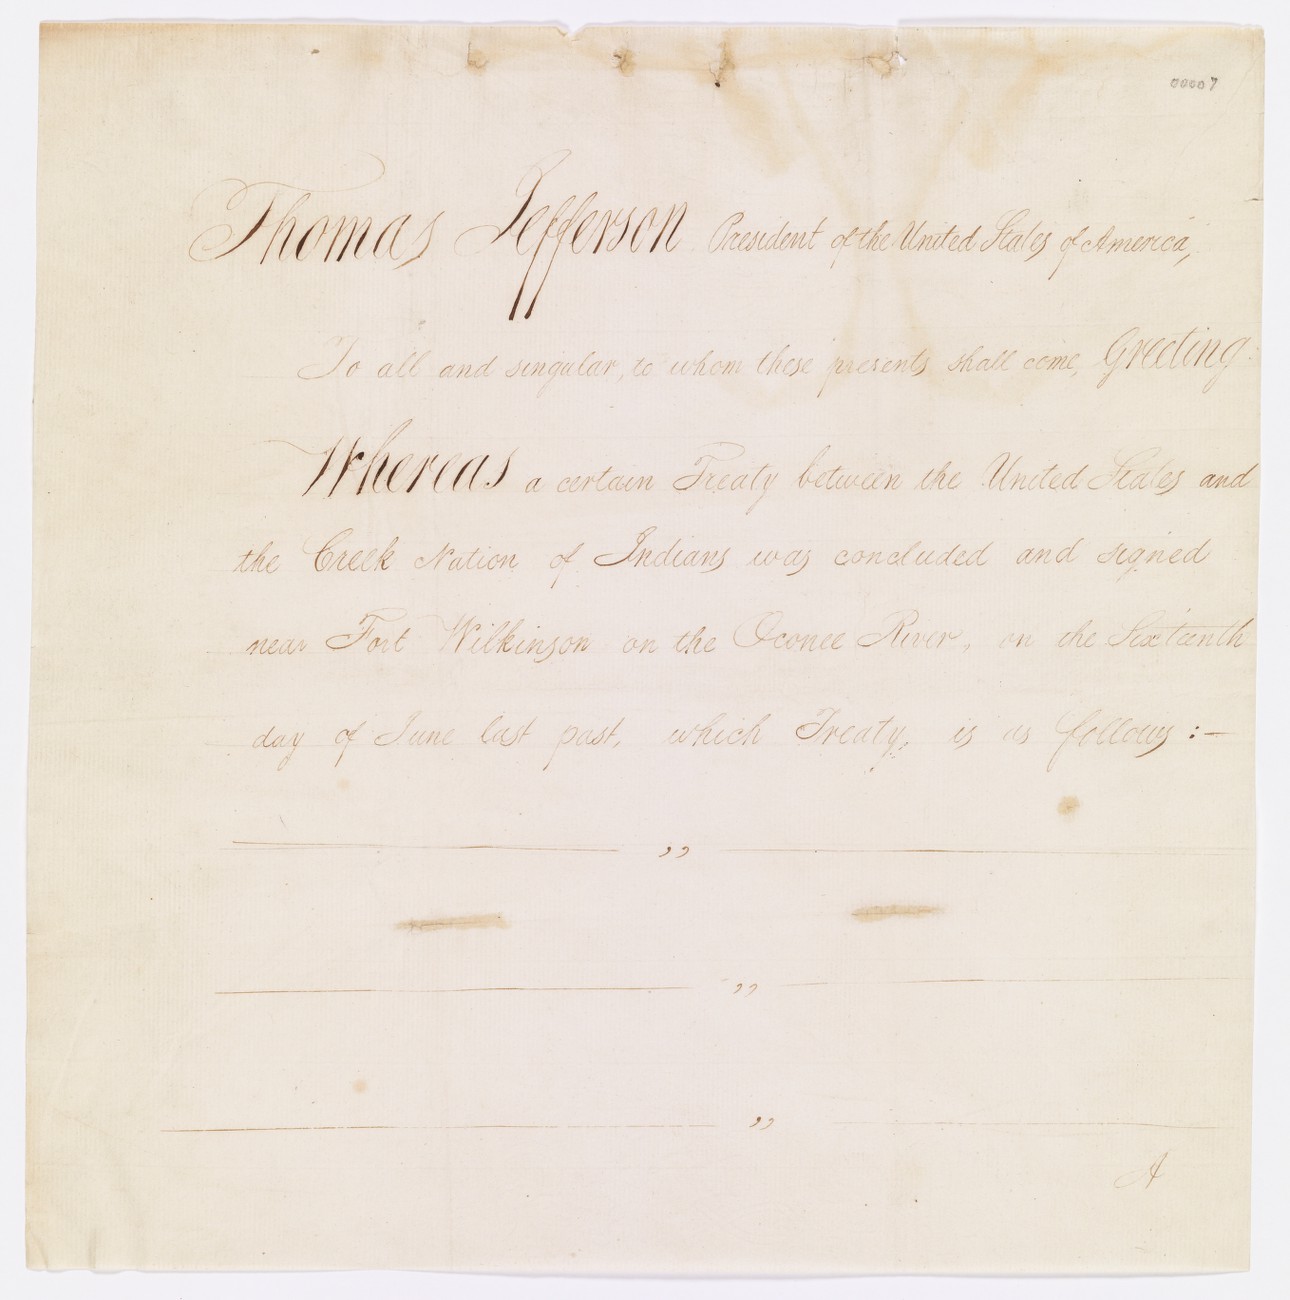 00007
Thomas Jefferson President of the United States of America,
To all and singular, to whom these presents shall come, Greeting.
Whereas a certain Treaty between the United States and
the Creek Nation of Indians was concluded and signed
near Fort Wilkinson on the Oconee River, on the Sixteenth
day of June last past, which Treaty, is as follows :—
,,
,,
,,
A